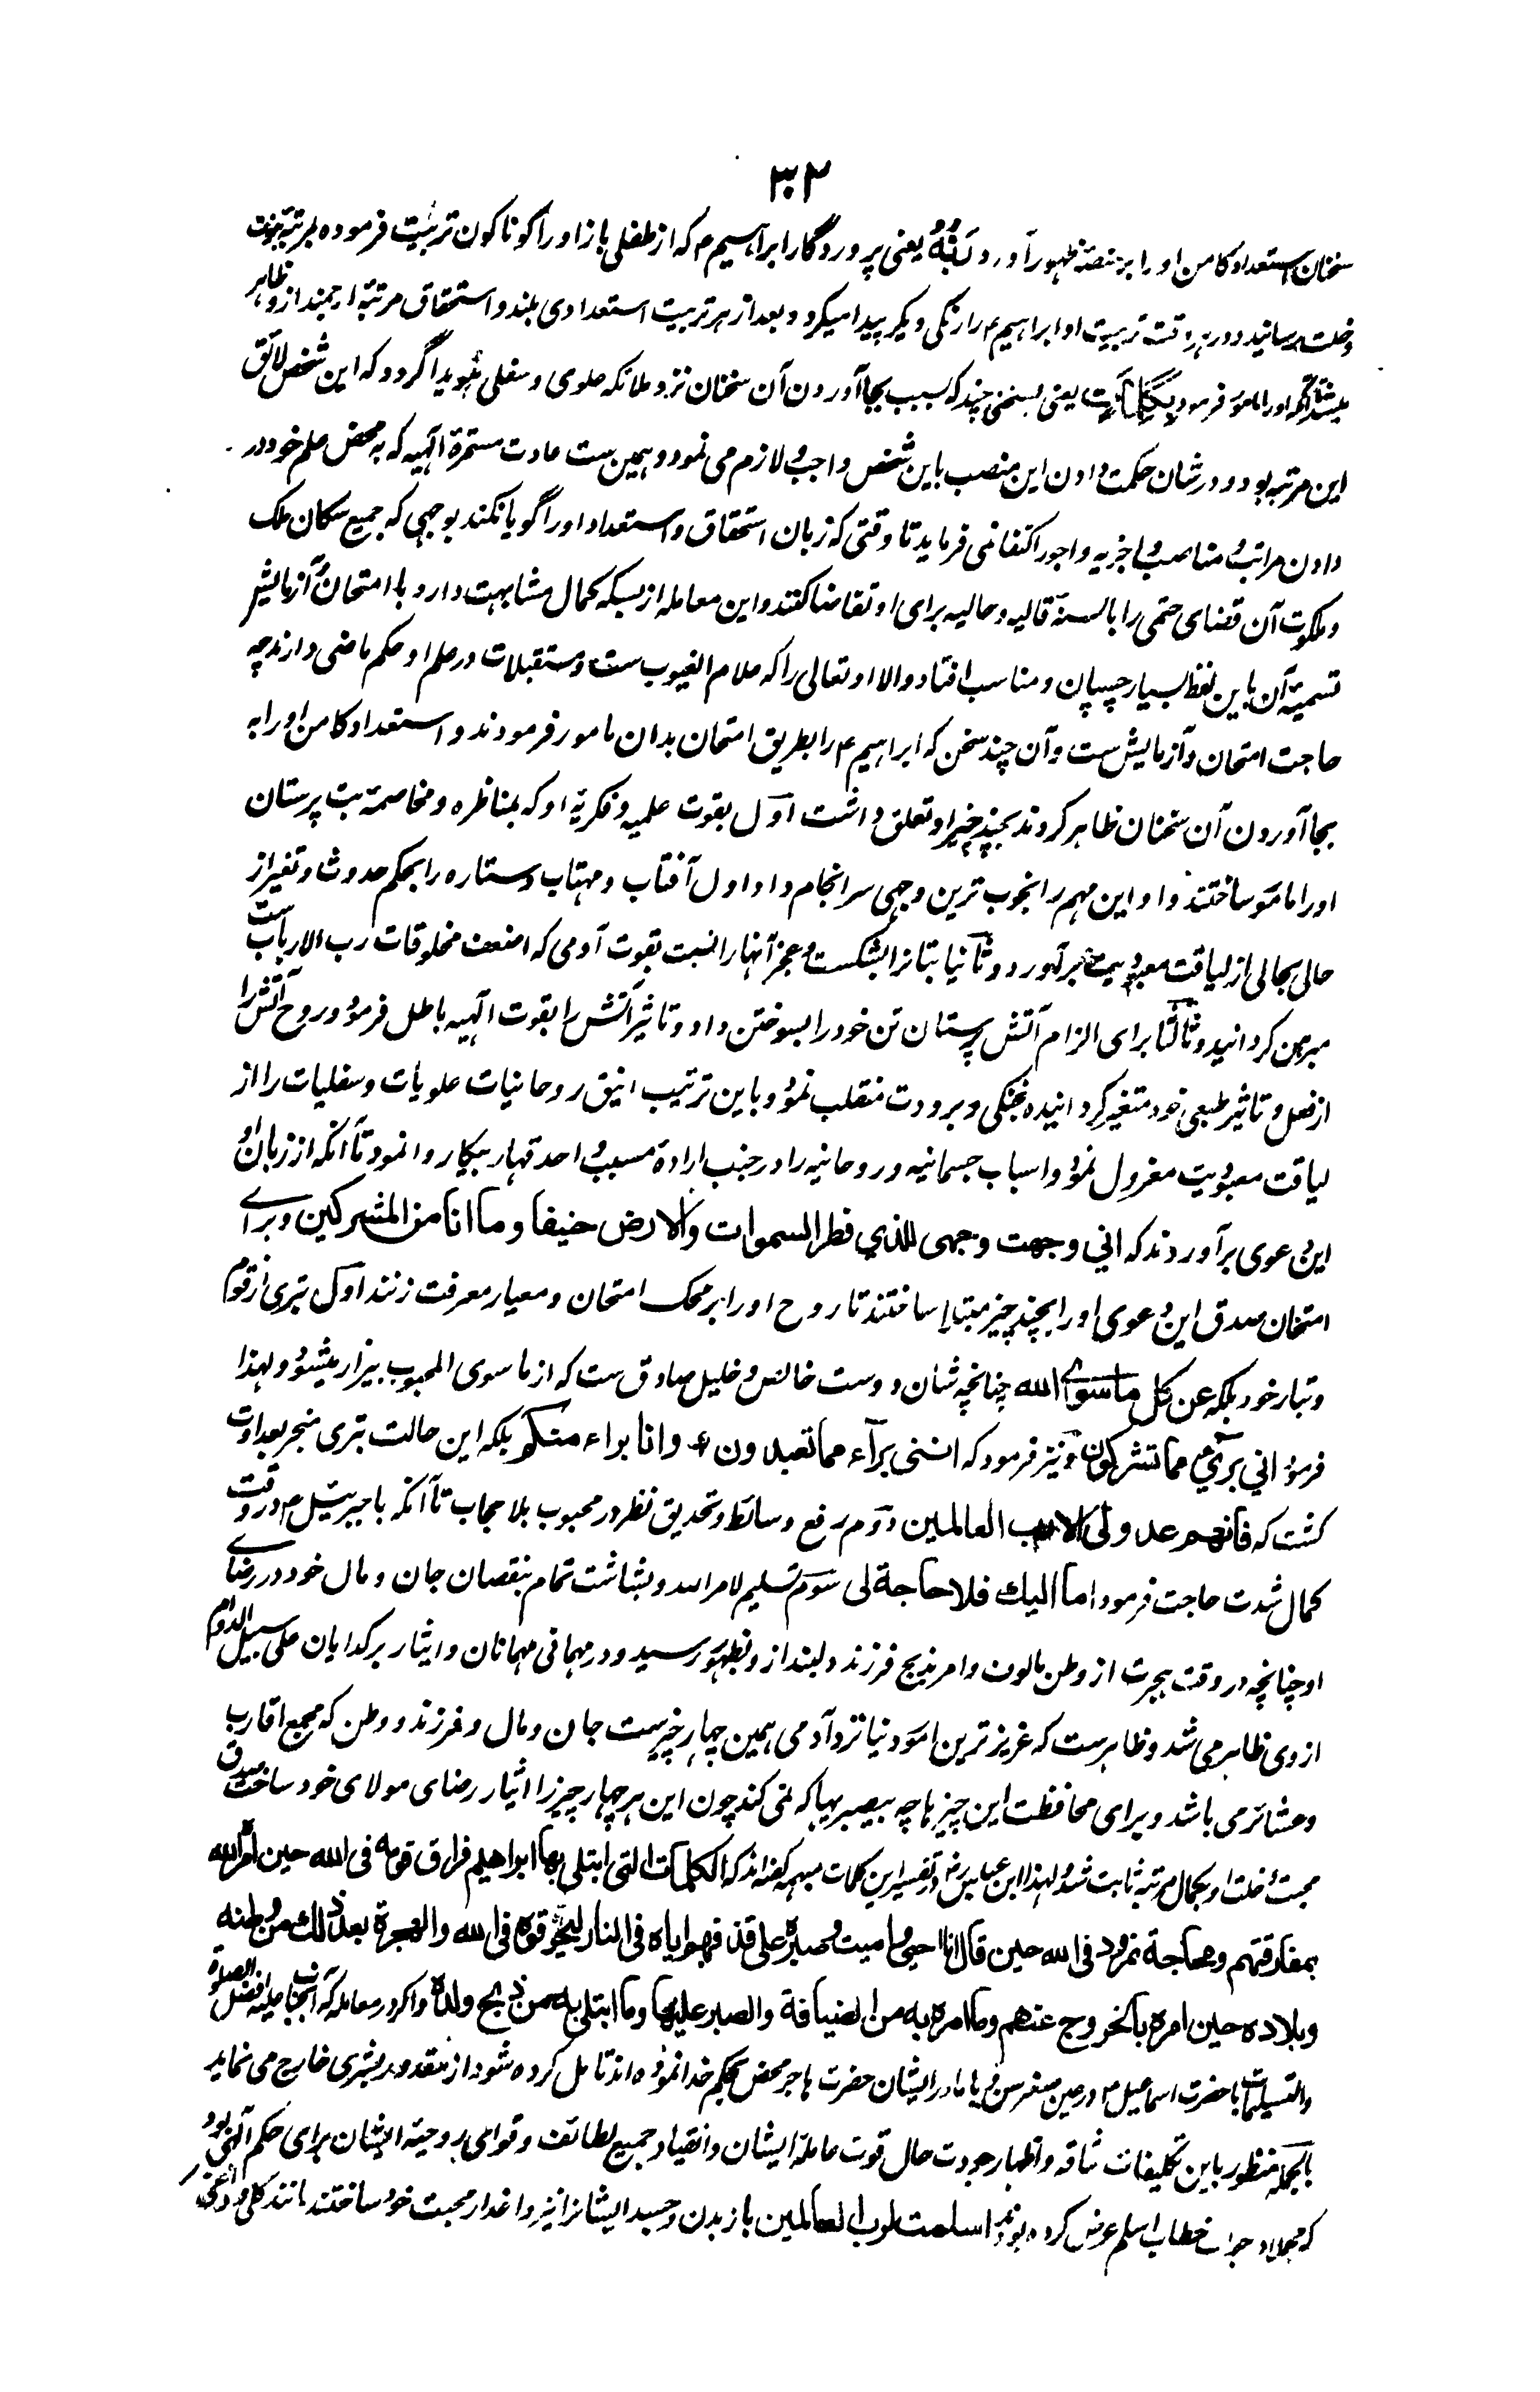 ۳۰۲
سخنان استعداد کامن او را بر منصّه ظهور آورد رَبُّهُ یعنی پروردگار ابراهیم ع که از طفلی باز او را گوناگون تربیت فرموده بمرتبۀ نبوت
و خلت رسانید و در هر وقت تربیت او ابراهیم ع را رنگی دیگر پیدا میکرد و بعد از هر تربیت استعدادی بلند و استحقاق مرتبۀ ارجمند از وی ظاهر
میشد آنکه او را مامور فرمود بِكَلِمَاتٍ یعنی بسخنی چند که بسبب بجا آوردن آن سخنان نزد ملائکه علوی و سفلی هویدا گردد که این شخص لائق
این مرتبه بود و در شان حکمت دادن این منصب باین شخص واجب و لازم می نمود و همین ست عادت مستمرۀ الٓهیه که به محض علم خود در
دادن مراتب و مناصب و اجزیه و اجور اکتفا نمی فرماید تا وقتی که زبان استحقاق و استعداد او را گویا نکند بوجهی که جمیع سکان ملک
و ملکوت آن قضای حتمی را بالسنۀ قالیه و حالیه برای او تقاضا کنند و این معامله از بسکه کمال مشابهت دارد با امتحان و آزمایش
تسمیۀ آن باین لفظ بسیار چسپان و مناسب افتاد والا او تعالی را که علام الغیوب ست و مستقبلات در علم او حکم ماضی دارند چه
حاجت امتحان و آزمایش ست و آن چند سخن که ابراهیم ع را بطریق امتحان بدان مامور فرمودند و استعداد کامن او را به
بجا آوردن آن سخنان ظاهر کردند بچند چیز او تعلق داشت اوّل بقوت علمیه و فکریۀ او که بمناظره و مخاصمۀ بت پرستان
او را مامور ساختند و او این مهم را بخوب ترین وجهی سرانجام داد اول آفتاب و مهتاب و ستاره را بحکم حدوث و تغیر از
حالی بحالی از لیاقت معبودیت برآورد و ثانیا بتانرا بشکست و عجز آنها را نسبت بقوت آدمی که اضعف مخلوقات رب الارباب ست
مبرهن گردانید و ثالثا برای الزام آتش پرستان تن خود را بسوختن داد و تاثیر آتش را بقوت الٓهیه باطل فرمود و روح آتش را
از فعل و تاثیر طبعی خود متغیر گردانیده بخنکی و برودت منقلب نمود و باین ترتیب انیق روحانیات علویات و سفلیات را از
لیاقت معبودیت معزول نمود و اسباب جسمانیه و روحانیه را در جنب ارادۀ مسبب واحد قهار بیکار وا نمود تا آنکه از زبان او
این دعوی برآوردند که اني وجهت وجهي للذي فطر السموات والارض حنيفا وما انا من المشركين و برای
امتحان صدق این دعوی او را بچند چیز مبتلا ساختند تا روح او را بر محک امتحان و معیار معرفت زنند اوّل تبری از قوم
و تبار خود بلکه عن كل ما سوى الله چنانچه شان دوست خالص و خلیل صادق ست که از ما سوی المحبوب بیزار میشود و لهذا
فرمود اني بريء مما تشركون و نیز فرمود که انني براء مما تعبدون و انا براء منكم بلکه این حالت تبری منجر بعداوت
گشت که فانهم عدو لي الا رب العالمين دوم رفع وسائط و تحدیق نظر در محبوب بلا حجاب تا آنکه با جبرئیل ع در وقت
کمال شدت حاجت فرمود اما اليك فلا حاجة لي سوم تسلیم لامر الله و بشاشت تمام بنقصان جان و مال خود در رضای
او چنانچه در وقت هجرت از وطن مالوف و امر بذبح فرزند دلبند از و بظهور رسید و در مهمانی مهمانان و ایثار بر گدایان علی سبیل الدوام
از وی ظاهر می شد و ظاهر ست که عزیز ترین امور دنیا نزد آدمی همین چهار چیز ست جان و مال و فرزند و وطن که مجمع اقارب
و عشائر می باشد و برای محافظت این چیز ها چه بیصبریها که نمی کند چون این هر چهار چیز را ایثار رضای مولای خود ساخت صدق
محبت و خلت او بکمال مرتبه ثابت شد و لهذا ابن عباس رض در تفسیر این کلمات مبهمه گفته اند که الكلمات التي ابتلي بها ابراهيم فراق قومه في الله حين امر الله
بمفارقتهم ومحاجة نمرود في الله حين قال انا احيي واميت وصبره على قذفهم اياه في النار ليحرقوه في الله والهجرة بعد ذلك من وطنه
وبلاده حين امره بالخروج عنهم وما امره به من الضيافة والصبر عليها وما ابتلي به من ذبح ولده و اگر در معاملۀ که آنجناب علیه افضل الصلوة
والتسلیمات با حضرت اسماعیل ع در عین صغر سن و با مادر ایشان حضرت هاجر محض بحکم خدا نموده اند تامل کرده شود از مقدور بشری خارج می نماید
بالجمله منظور باین تکلیفات شاقه و اظهار جودت حال قوت عاملۀ ایشان و انقیاد جمیع لطائف و قوای روحیۀ ایشان برای حکم الٓهی بود
که مجملا در جواب خطاب اسلم عرض کرده بودند اسلمت لرب العالمين باز بدن و جسد ایشانرا نیز داغدار محبت خود ساختند مانند